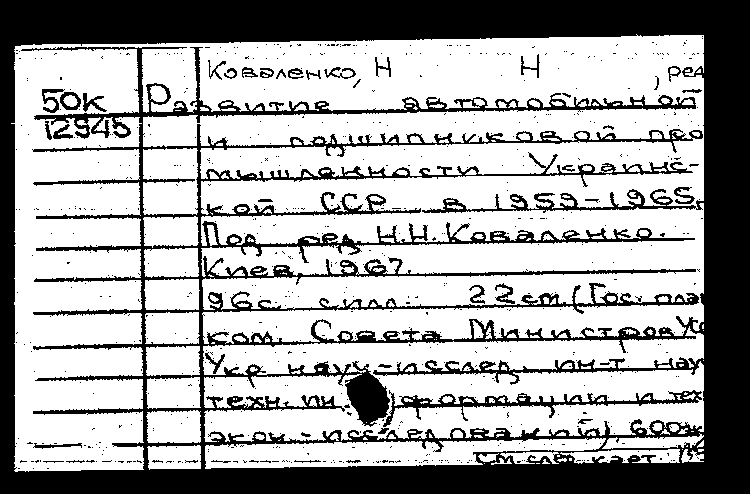 Коваленко, Н Н , ред
50К Развитие автомобильной
12945 и подшипниковой про
мышленности Украинс-
кой ССР в 1959-1965г
Под ред. Н.Н. Коваленко.
Киев, 1967.
96с с илл. 22см. (Гос. план
ком. Совета Министров УС
Укр науч-исслед. ин-т нау
техн. ин формации и тех
экон.-исследований) 600эк
см. след. карт.